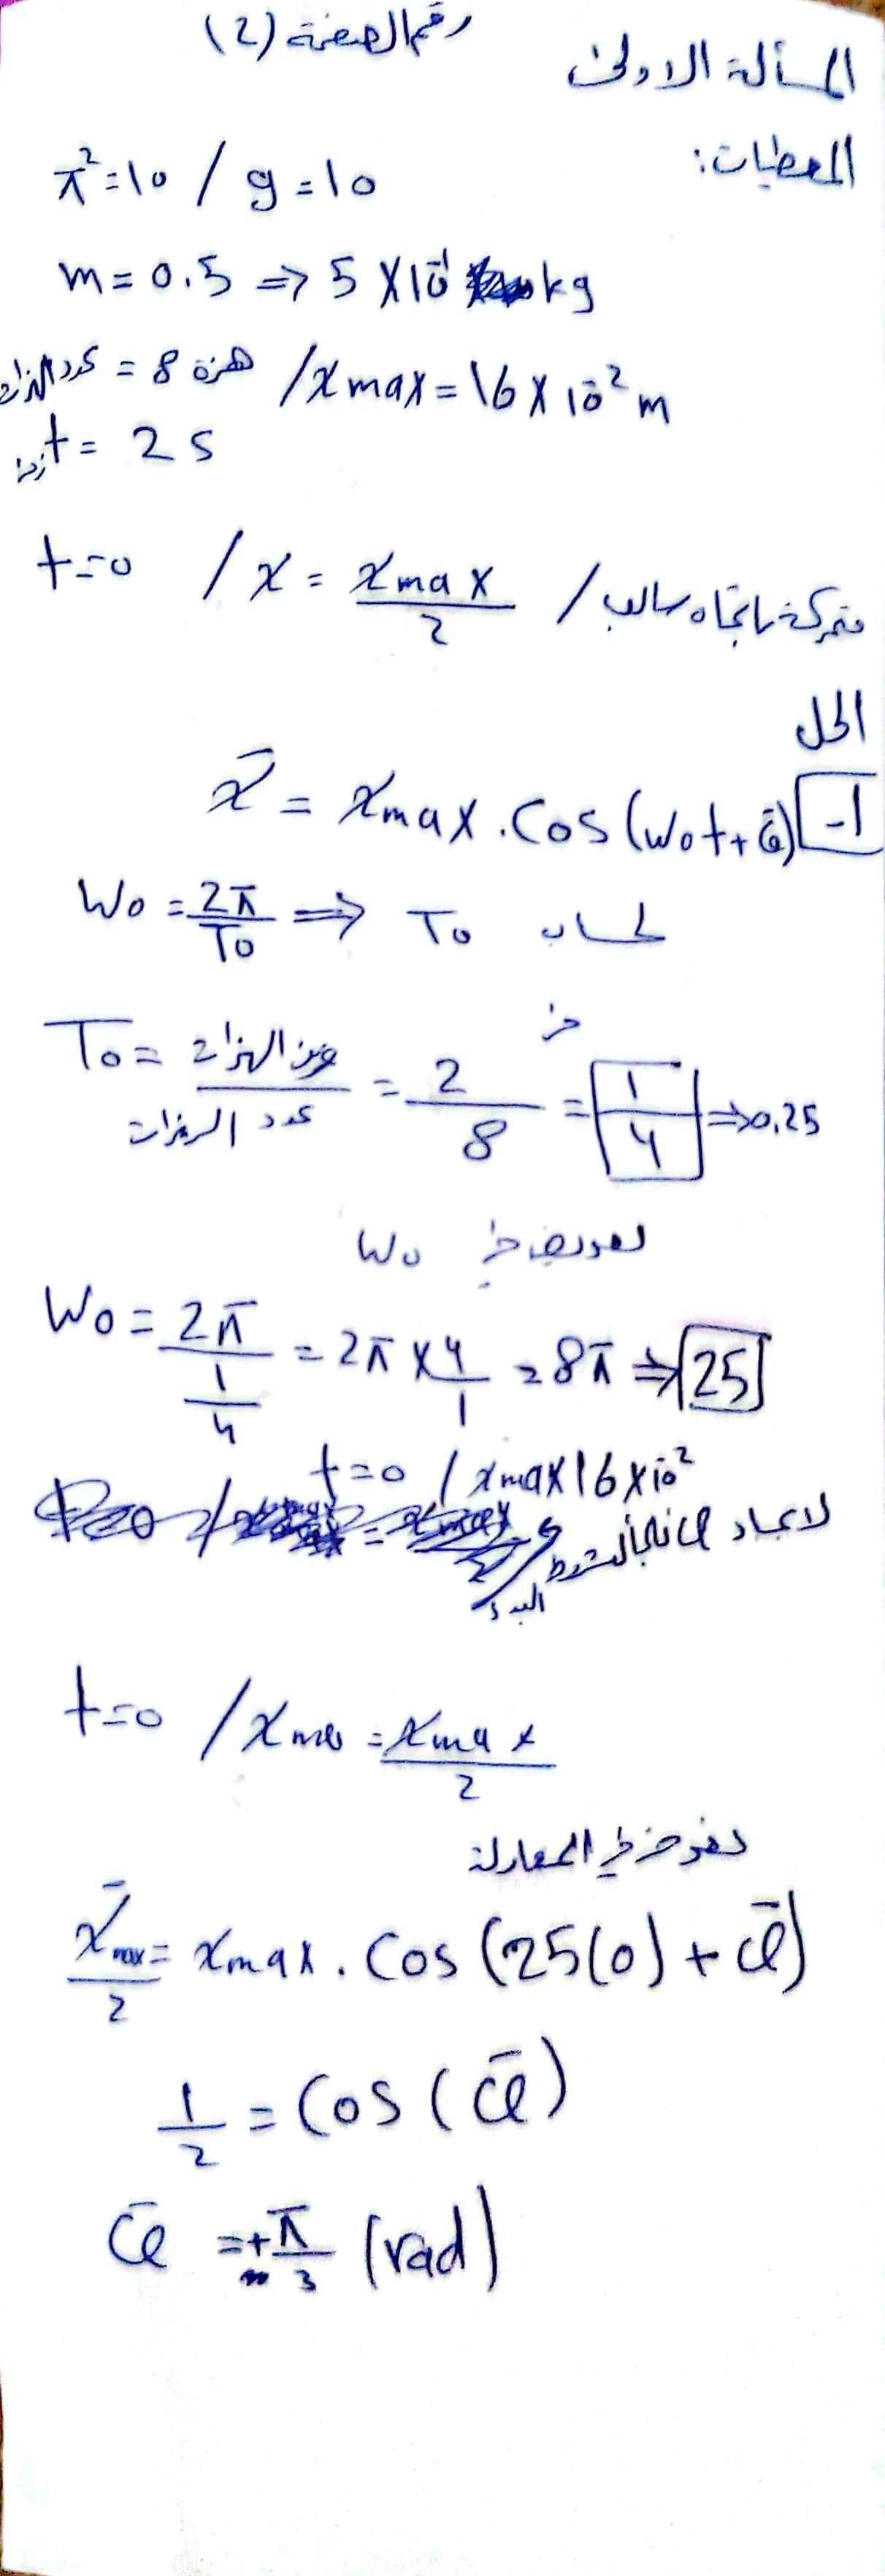 رقم الصفحة (2)
المسألة الاولى
المعطيات:
π²=10 / g=10
m = 0.5 => 5 X10⁻¹ kg
عدد الهزات = 8 هزة / xmax = 16 X 10⁻² m
زمن t = 2 s
t=0 / x = xmax/2 / متحركة باتجاه سالب
الحل
1- x̄ = xmax . Cos (wot + φ̄)
Wo = 2π/To => To لحساب
To = زمن الهزات/عدد الهزات = 2/8 = 1/4 => 0.25
نعوض في Wo
Wo = 2π/(1/4) = 2π X 4/1 = 8π => 25
t=0 / xmax 16 X 10⁻²
لايجاد φ نلجأ لشروط
البدء
t=0 / xmax = xmax/2
نعوض في المعادلة
x̄max/2 = xmax . Cos (25(0) + φ̄)
1/2 = Cos (φ̄)
φ̄ = + π/3 (rad)